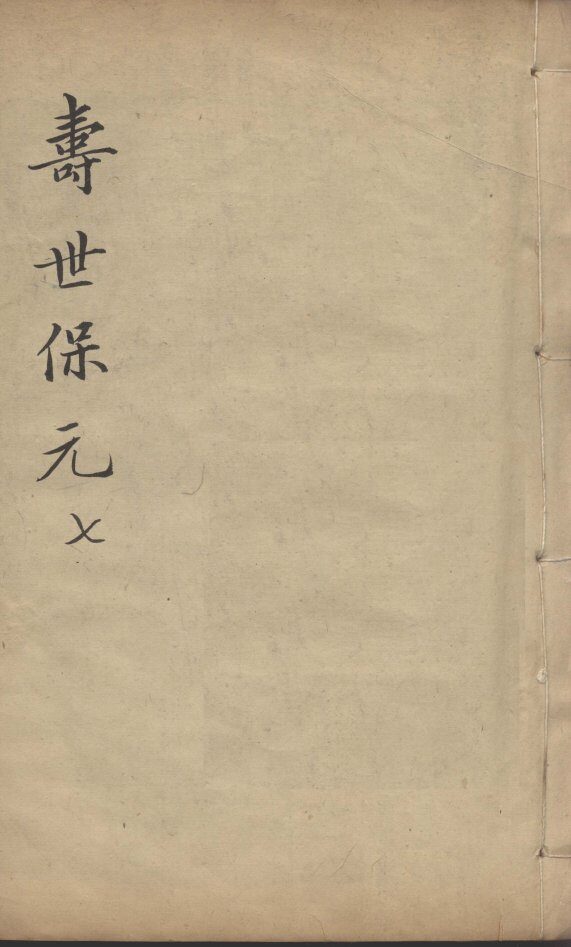 壽世保元七